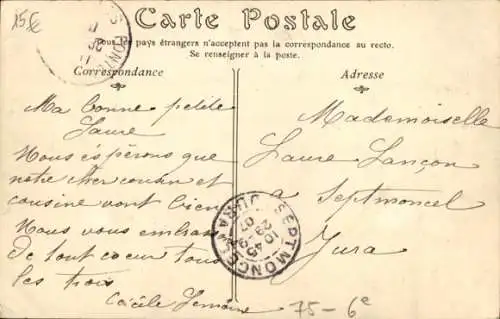 15€
Carte Postale
Tous les pays étrangers n'acceptent pas la correspondance au recto.
Se renseigner à la poste.
Correspondance
Adresse
Ma bonne petite
Laure
Nous espérons que
notre cher cousin et
cousine vont bien
Nous vous embrass
de tout coeur tous
les trois
Cécile Lemoine
Mademoiselle
Laure Lançon
à Septmoncel
Jura
SEPTMONCEL
JURA
10-45
29-9
07
75-6e